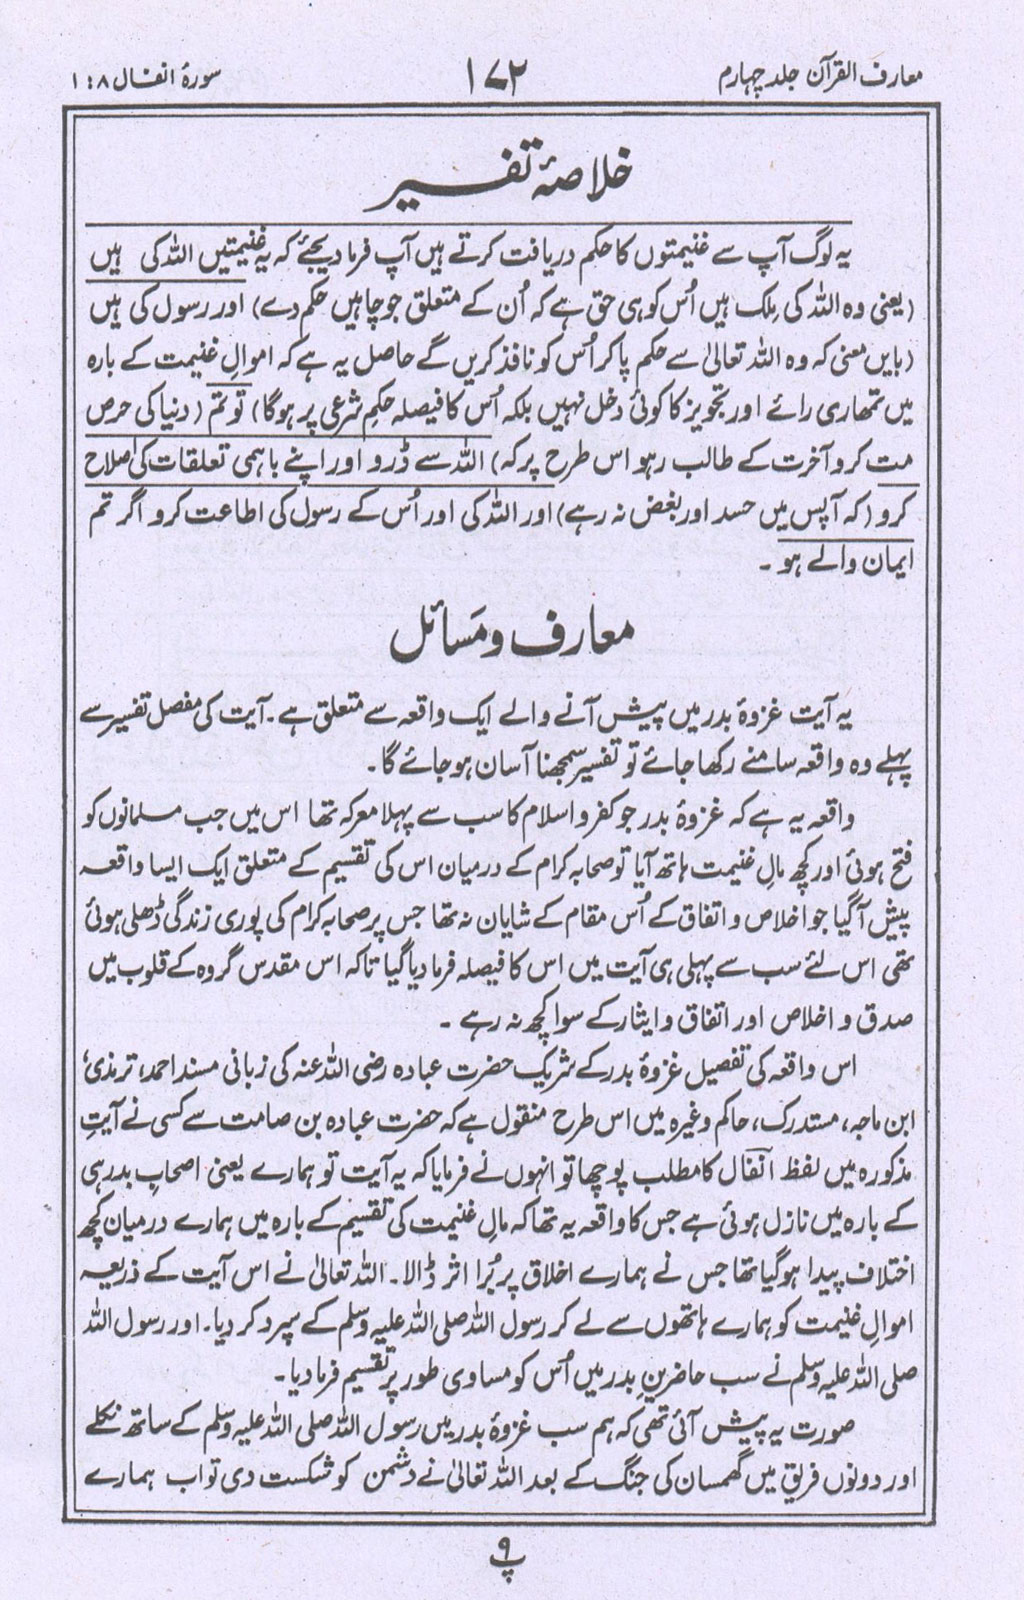 معارف القرآن جلد چہارم
۱۷۲
سورۂ انفال ۸ : ۱
خلاصۂ تفسیر
یہ لوگ آپ سے غنیمتوں کا حکم دریافت کرتے ہیں آپ فرما دیجئے کہ یہ غنیمتیں اللہ کی ہیں
(یعنی وہ اللہ کی مِلک ہیں اُس کو ہی حق ہے کہ اُن کے متعلق جو چاہیں حکم دے) اور رسول کی ہیں
(بایں معنی کہ وہ اللہ تعالیٰ سے حکم پاکر اُس کو نافذ کریں گے حاصل یہ ہے کہ اموالِ غنیمت کے بارہ
میں تمھاری رائے اور تجویز کا کوئی دخل نہیں بلکہ اُس کا فیصلہ حکمِ شرعی پر ہوگا) تو تم (دنیا کی حرص
مت کرو آخرت کے طالب رہو اس طرح پر کہ) اللہ سے ڈرو اور اپنے باہمی تعلقات کی اصلاح
کرو (کہ آپس میں حسد اور بغض نہ رہے) اور اللہ کی اور اُس کے رسول کی اطاعت کرو اگر تم
ایمان والے ہو ۔
معارف و مَسائل
یہ آیت غزوۂ بدر میں پیش آنے والے ایک واقعہ سے متعلق ہے۔ آیت کی مفصل تفسیر سے
پہلے وہ واقعہ سامنے رکھا جائے تو تفسیر سمجھنا آسان ہو جائے گا۔
واقعہ یہ ہے کہ غزوۂ بدر جو کفر و اسلام کا سب سے پہلا معرکہ تھا اس میں جب مسلمانوں کو
فتح ہوئی اور کچھ مالِ غنیمت ہاتھ آیا تو صحابہ کرام کے درمیان اس کی تقسیم کے متعلق ایک ایسا واقعہ
پیش آگیا جو اخلاص و اتفاق کے اُس مقام کے شایان نہ تھا جس پر صحابہ کرام کی پوری زندگی ڈھلی ہوئی
تھی اس لئے سب سے پہلی ہی آیت میں اس کا فیصلہ فرما دیا گیا تاکہ اس مقدس گروہ کے قلوب میں
صدق و اخلاص اور اتفاق و ایثار کے سوا کچھ نہ رہے ۔
اس واقعہ کی تفصیل غزوۂ بدر کے شریک حضرت عبادہ رضی اللہ عنہ کی زبانی مسند احمد، ترمذی،
ابن ماجہ، مستدرک، حاکم وغیرہ میں اس طرح منقول ہے کہ حضرت عبادہ بن صامت سے کسی نے آیتِ
مذکورہ میں لفظ انفال کا مطلب پوچھا تو انہوں نے فرمایا کہ یہ آیت تو ہمارے یعنی اصحابِ بدر ہی
کے بارہ میں نازل ہوئی ہے جس کا واقعہ یہ تھا کہ مالِ غنیمت کی تقسیم کے بارہ میں ہمارے درمیان کچھ
اختلاف پیدا ہوگیا تھا جس نے ہمارے اخلاق پر بُرا اثر ڈالا۔ اللہ تعالیٰ نے اس آیت کے ذریعہ
اموالِ غنیمت کو ہمارے ہاتھوں سے لے کر رسول اللہ صلی اللہ علیہ وسلم کے سپرد کر دیا۔ اور رسول اللہ
صلی اللہ علیہ وسلم نے سب حاضرینِ بدر میں اُس کو مساوی طور پر تقسیم فرما دیا۔
صورت یہ پیش آئی تھی کہ ہم سب غزوۂ بدر میں رسول اللہ صلی اللہ علیہ وسلم کے ساتھ نکلے
اور دونوں فریق میں گھمسان کی جنگ کے بعد اللہ تعالیٰ نے دشمن کو شکست دی تو اب ہمارے
۹
پ